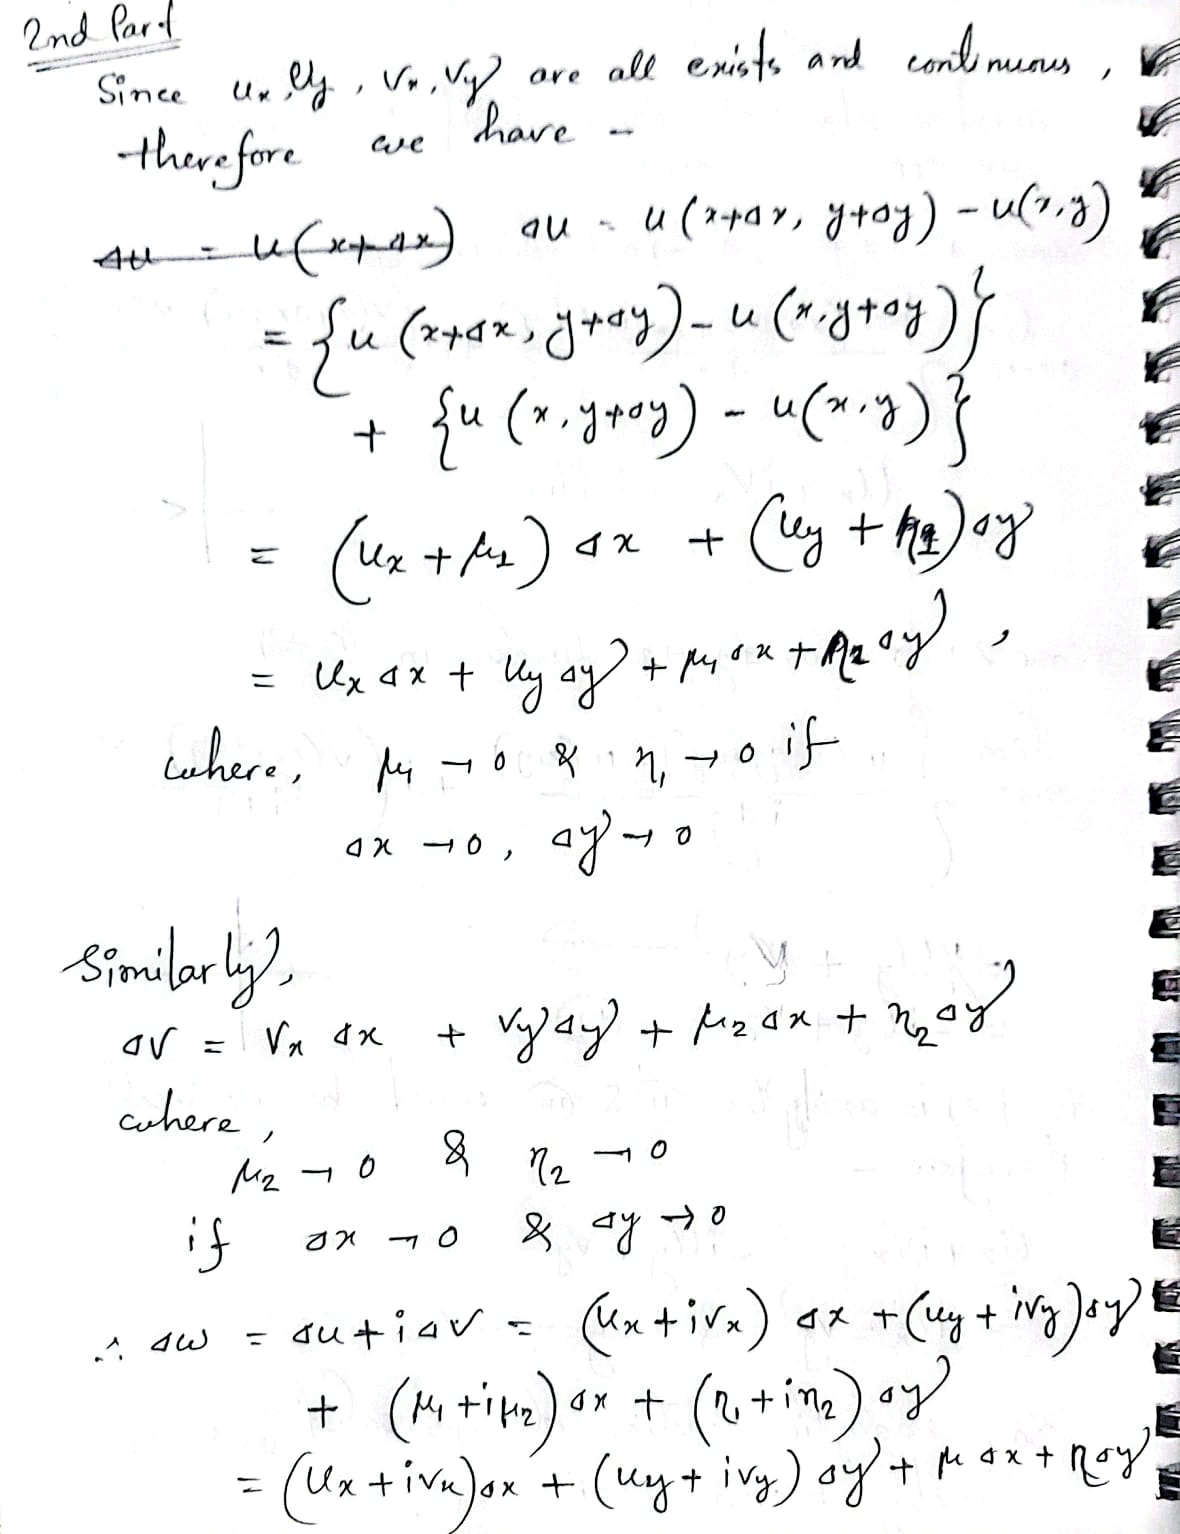 2nd Part
Since uₓ, u_y, vₓ, v_y are all exists and continuous,
therefore we have -
Δu = u(x+Δx) Δu = u(x+Δx, y+Δy) - u(x,y)
= {u(x+Δx, y+Δy) - u(x,y+Δy)}
+ {u(x,y+Δy) - u(x,y)}
= (uₓ + μ₁) Δx + (u_y + η₁) Δy
= uₓ Δx + u_y Δy + μ₁ Δx + η₂ Δy,
where, μ₁ → 0 & η₁ → 0 if
Δx → 0, Δy → 0
Similarly,
Δv = vₓ Δx + v_y Δy + μ₂ Δx + η₂ Δy
where,
μ₂ → 0 & η₂ → 0
if Δx → 0 & Δy → 0
∴ Δw = Δu + iΔv = (uₓ + ivₓ) Δx + (u_y + iv_y) Δy
+ (μ₁ + iμ₂) Δx + (η₁ + iη₂) Δy
= (uₓ + ivₓ) Δx + (u_y + iv_y) Δy + μ Δx + η Δy